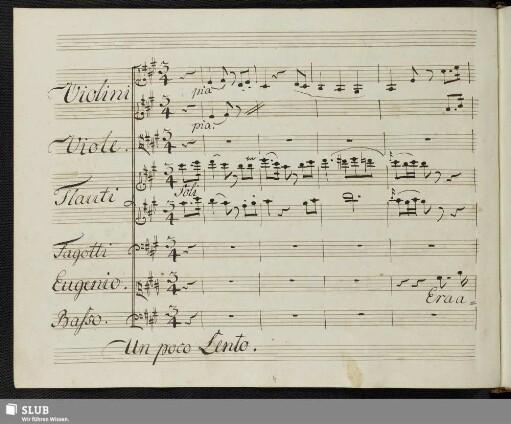 Violini
pia
pia:
Viole.
Flauti
Soli
Fagotti
Eugenio.
Era a=
Basso.
Un poco Lento.
SLUB
Wir führen Wissen.